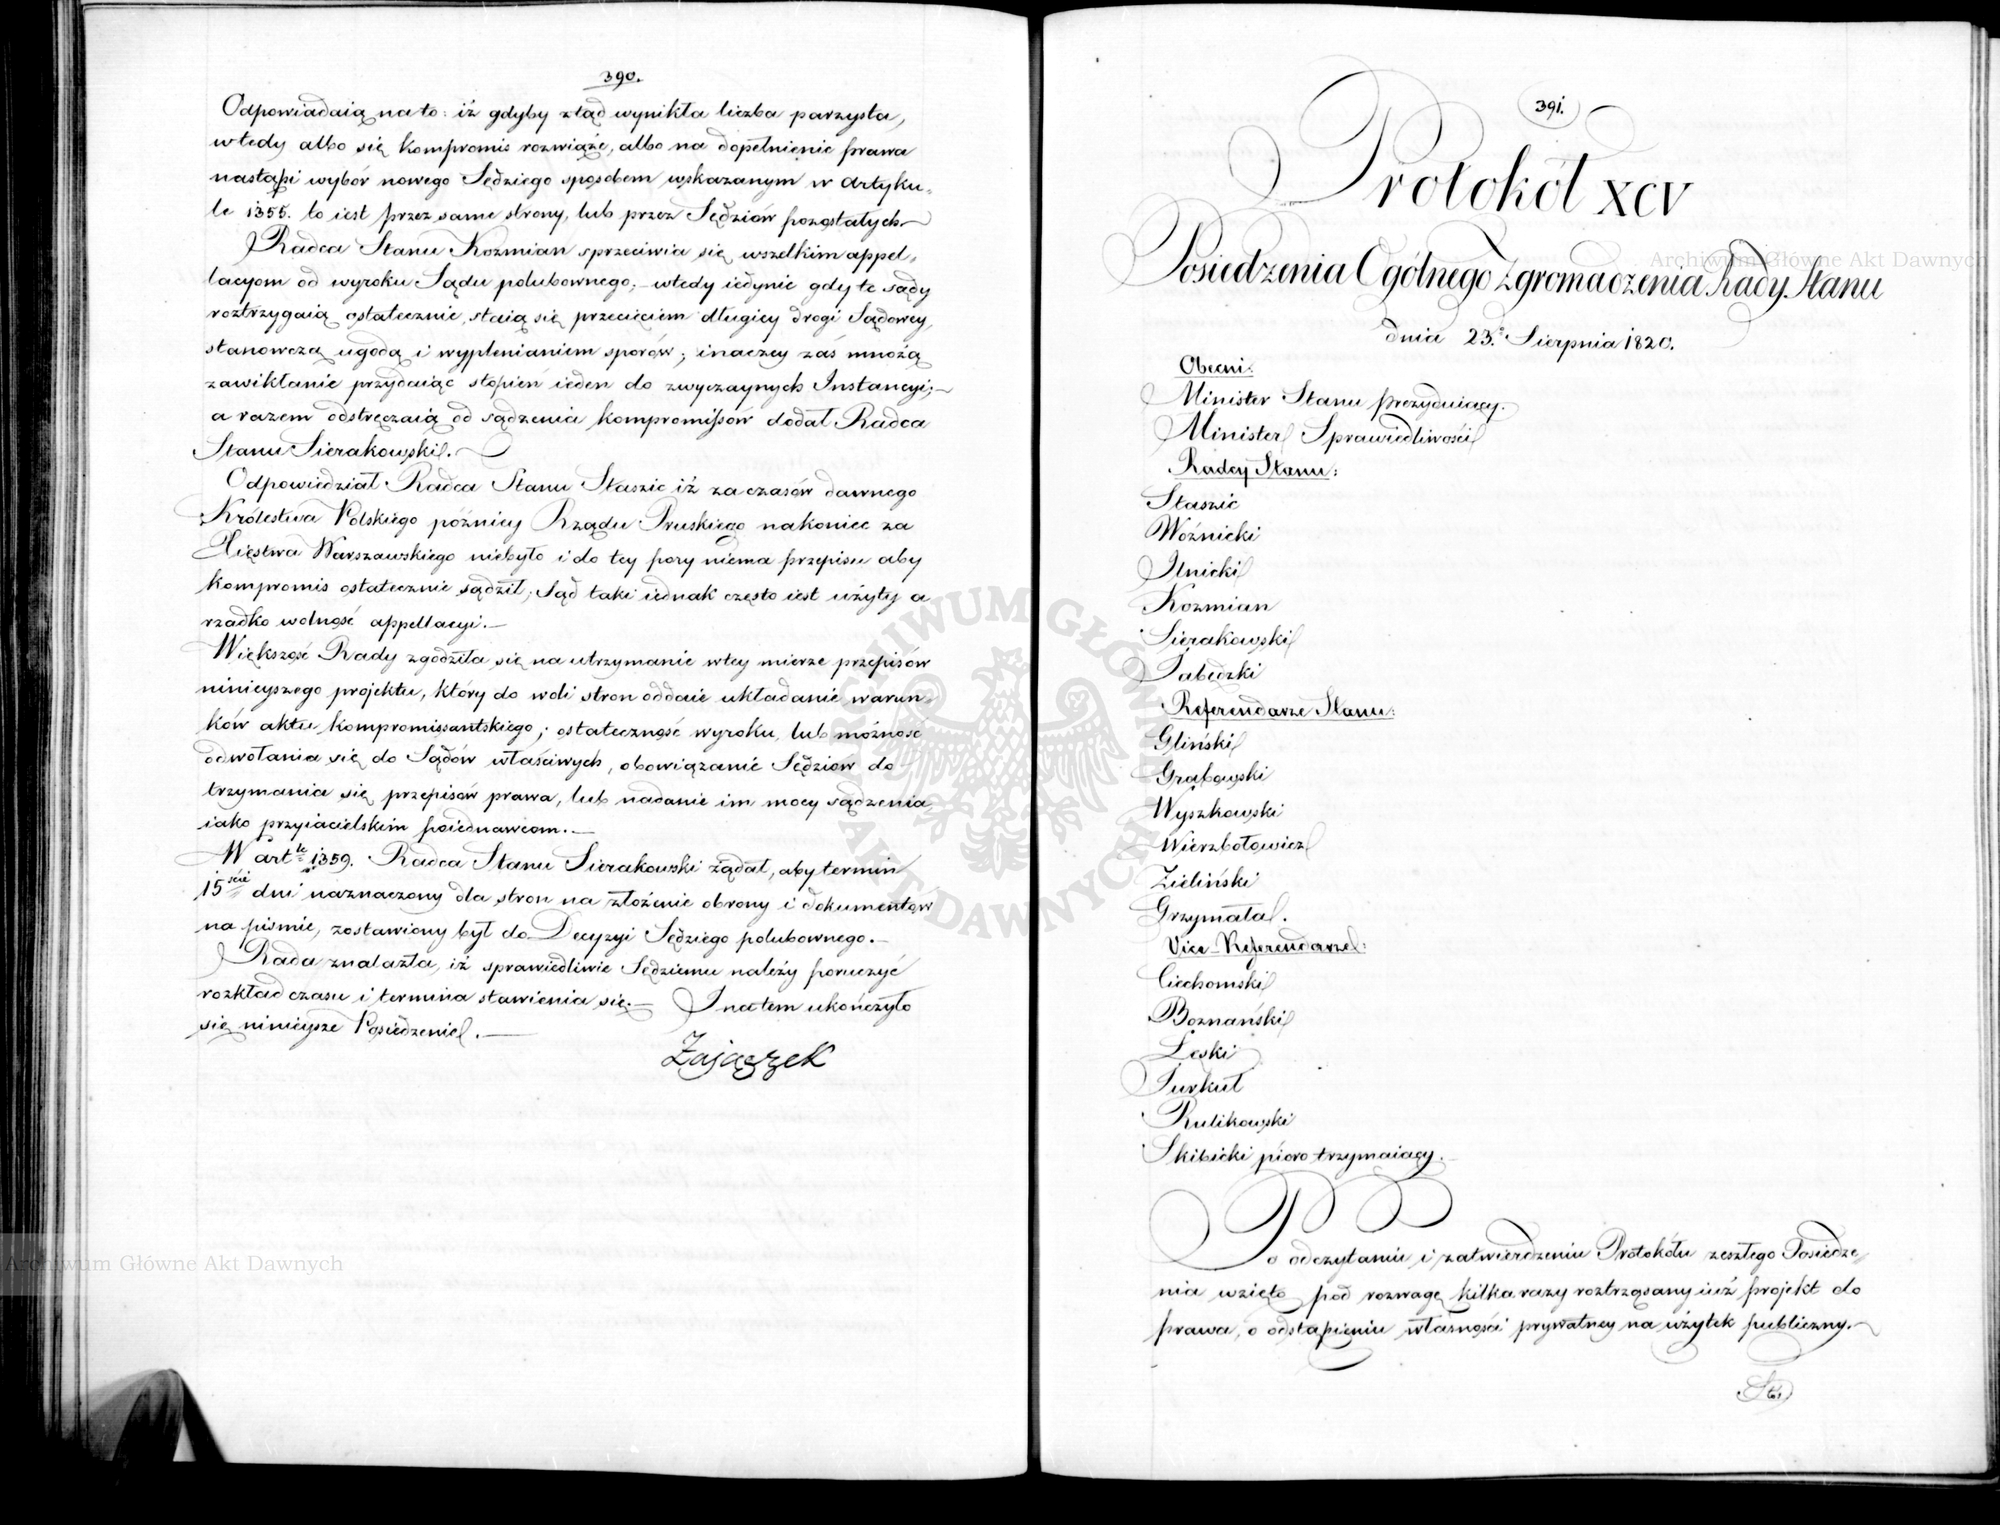 390.
Odpowiadaią na to: iż gdyby ztąd wynikła liczba parzysta,
wtedy albo się kompromis rozwiąże, albo na dopełnienie prawa
nastąpi wybór nowego Sędziego sposobem wskazanym w Artyku„
le 1355. to iest przez same strony, lub przez Sędziów pozostałych.—
Radca Stanu Kozmian sprzeciwia się wszelkim appel„
lacyom od wyroku Sądu polubownego; wtedy iedynie gdy te sądy
roztrzygaią ostatecznie, staią się przecięciem długiey drogi Sądowey,
stanowczą ugodą i wyplenianiem sporów; inaczey zaś mnożą
zawikłanie przydaiąc stopień ieden do zwyczaynych Instancyi;—
a razem odstręczaią od sądzenia kompromissów dodał Radca
Stanu Sierakowski.—
Odpowiedział Radca Stanu Staszic iż za czasów dawnego
Królestwa Polskiego późniey Rządu Pruskiego nakoniec za
Xięstwa Warszawskiego niebyło i do tey pory niema przepisu aby
kompromis ostatecznie sądził; Sąd taki iednak często iest użyty a
rzadko wolność appellacyi.—
Większość Rady zgodziła się na utrzymanie w tey mierze przepisów
ninieyszego projektu, który do woli stron oddaie układanie warun„
ków aktu kompromissarskiego; ostateczność wyroku, lub możność
odwołania się do Sądów właściwych, obowiązanie Sędziów do
trzymania się przepisów prawa, lub nadanie im mocy sądzenia
iako przyiacielskim poiednawcom.—
W artle 1359. Radca Stanu Sierakowski żądał, aby termin
15scie dni naznaczony dla stron na złożenie obrony i dokumentów
na piśmie, zostawiony był do Decyzyi Sędziego polubownego.—
Rada znalazła, iż sprawiedliwie Sędziemu należy poruczyć
rozkład czasu i termina stawienia się.— I na tem ukończyło
się ninieysze Posiedzenie.—
Zajączek
391.
Protokół XCV
Posiedzenia Ogólnego Zgromadzenia Rady Stanu
dnia 23.o Sierpnia 1820.
Obecni:
Minister Stanu prezyduiący.
Minister Sprawiedliwości
Radcy Stanu:
Staszic
Woźnicki
Ilnicki
Kozmian
Sierakowski
Łabędzki
Referendarze Stanu:
Gliński
Grabowski
Wyszkowski
Wierzbołowicz
Zieliński
Grzymała.
Vice-Referendarze:
Ciechomski
Boznański
Łęski
Turkuł
Rulikowski
Skibicki pióro trzymaiący.
Po odczytaniu i zatwierdzeniu Protokółu zeszłego Posiedze„
nia wzięto pod rozwagę kilka razy roztrząsany iuż projekt do
prawa, o odstąpieniu własności prywatney na użytek publiczny.—
Archiwum Główne Akt Dawnych
Archiwum Główne Akt Dawnych
ARCHIWUM GŁÓWNE AKT DAWNYCH